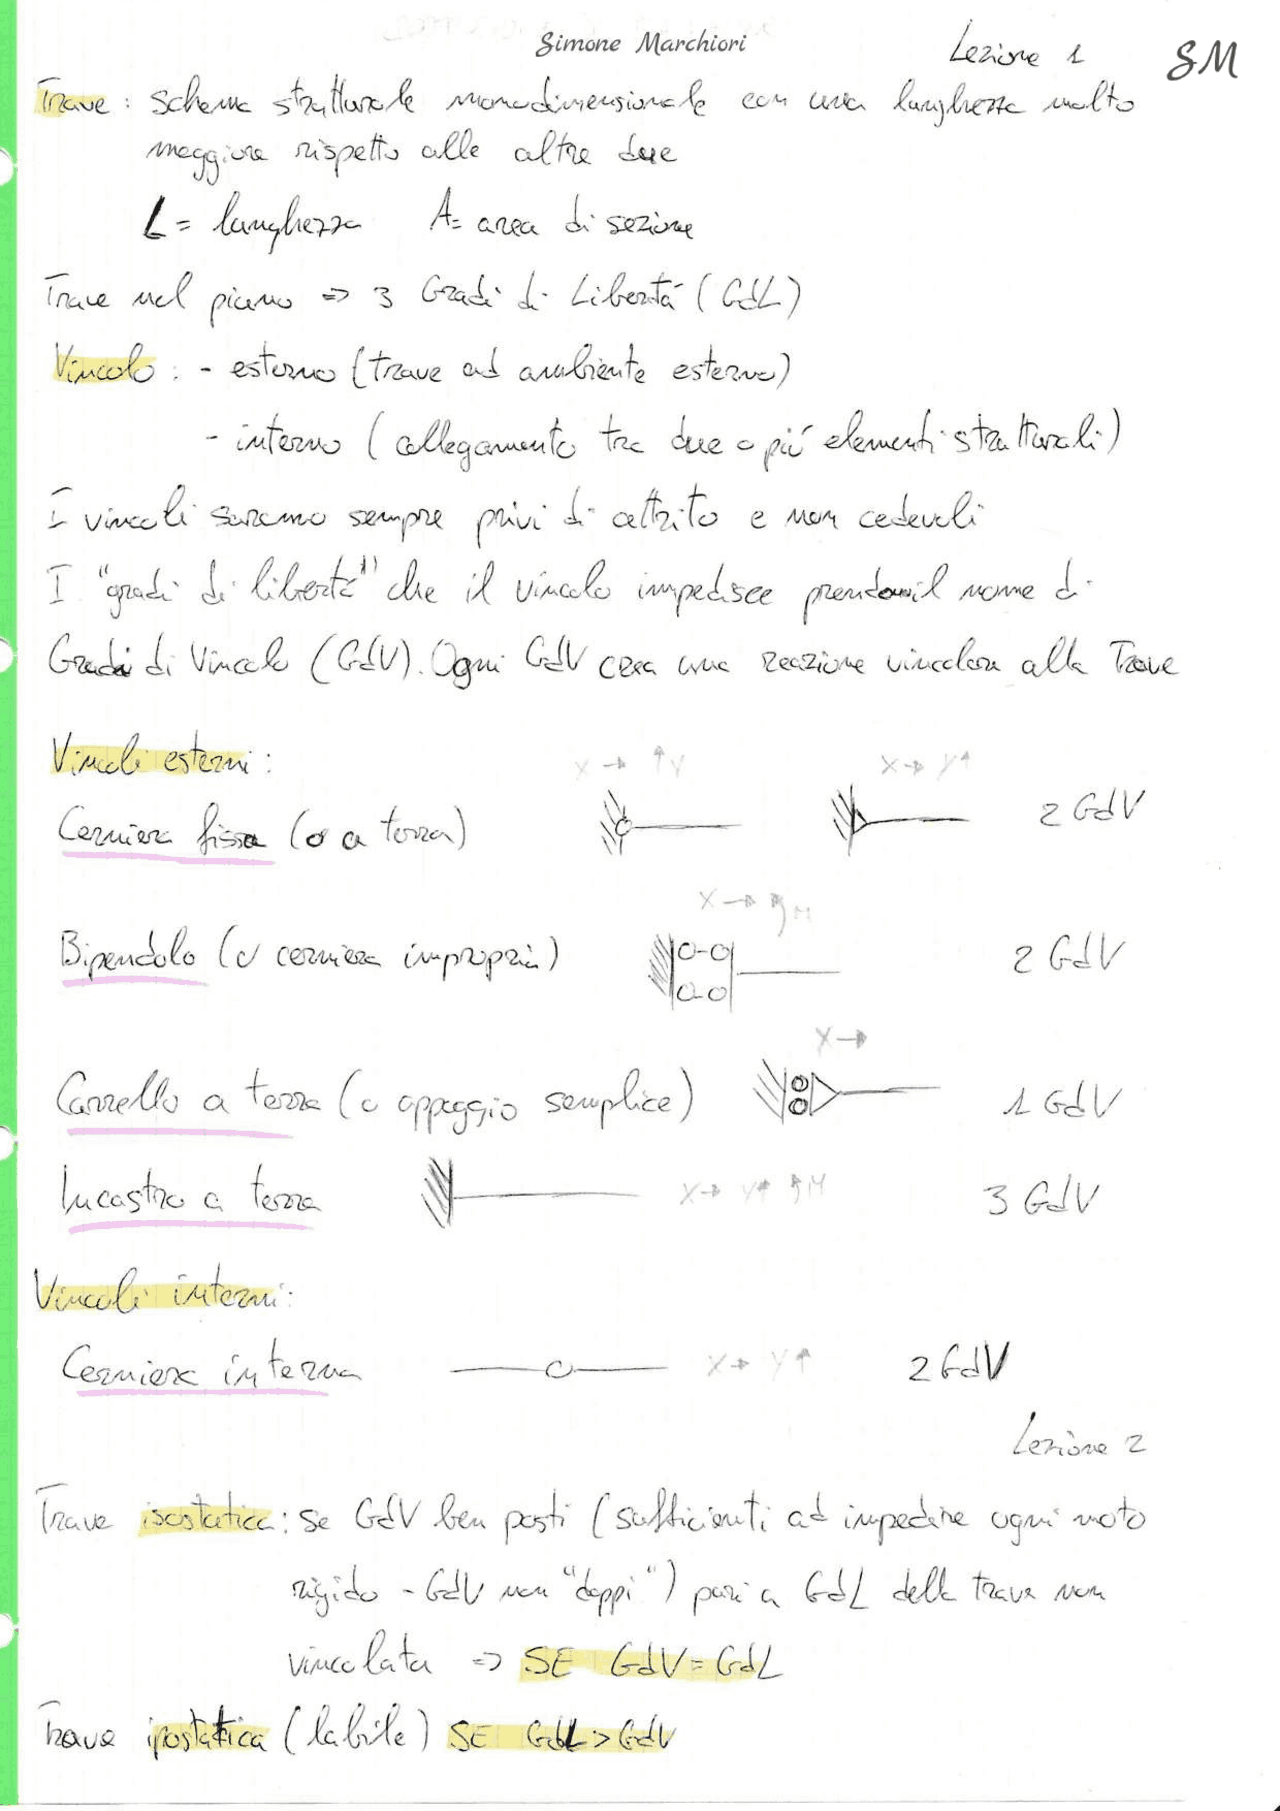 Simone Marchiori
Lezione 1
SM
Trave : schema strutturale monodimensionale con una lunghezza molto
maggiore rispetto alle altre due
L = lunghezza A = area di sezione
Trave nel piano => 3 Gradi di Libertá (GdL)
Vincolo : - esterno (trave ad ambiente esterno)
- interno (collegamento tra due o piú elementi strutturali)
I vincoli saranno sempre privi di attrito e non cedevoli
I "gradi di libertá" che il vincolo impedisce prendono il nome di
Gradi di Vincolo (GdV). Ogni GdV crea una reazione vincolare alla Trave
Vincoli esterni :
X → ↑ Y X → Y ↑
Cerniera fissa (o a terra) 2 GdV
X → M
Bipendolo (o cerniera impropria) 2 GdV
X →
Carrello a terra (o appoggio semplice) 1 GdV
Incastro a terra X → Y ↑ M 3 GdV
Vincoli interni :
Cerniera interna X → Y ↑ 2 GdV
Lezione 2
Trave isostatica : se GdV ben posti (sufficienti ad impedire ogni moto
rigido - GdV non "doppi") pari a GdL della trave non
vincolata => SE GdV = GdL
Trave ipostatica (labile) SE GdL > GdV